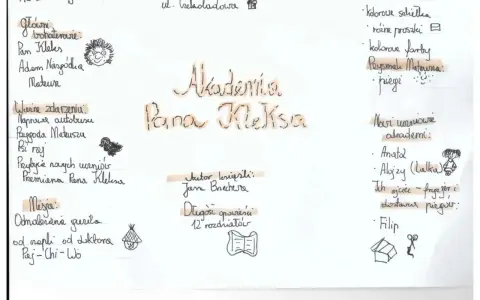 ul. Czekoladowa
Główni
bohaterowie:
Pan Kleks
Adam Niezgódka
Mateusz
Ważne zdarzenia:
Naprawa autobusu
Przygoda Mateusza
Psi raj
Przyjęcie nowych uczniów
Przemiana Pana Kleksa
Misja:
Odnalezienie guzika
od czapki od doktora
Paj-Chi-Wo
Akademia
Pana Kleksa
Autor książki:
Jan Brzechwa
Długość opowieści:
12 rozdziałów
kolorowe szkiełka
różne proszki
kolorowe farby
Przysmak Mateusza:
piegi
Nowi uczniowie
akademii:
Anatol
Alojzy (lalka)
Ich ojciec - fryzjer i
dostawca piegów:
Filip